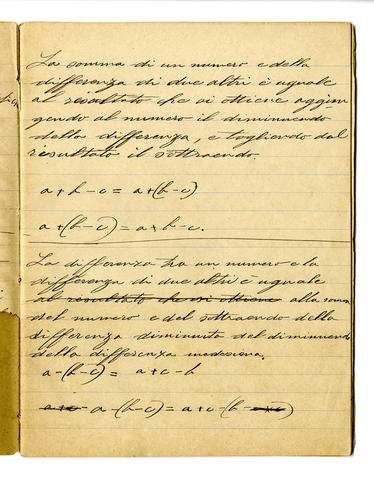 La somma di un numero e della
differenza di due altri è uguale
al risultato che si ottiene aggiun-
gendo al numero il diminuendo
della differenza, e togliendo dal
resultato il sottraendo.
a + b - c = a + (b - c)
a + (b - c) = a + b - c.
La differenza tra un numero e la
differenza di due altri è uguale
al resultato che si ottiene alla somma
del numero e del sottraendo della
differenza diminuita del diminuendo
della differenza medesima.
a - (b - c) = a + c - b
a + c a - (b - c) = a + c - (b -